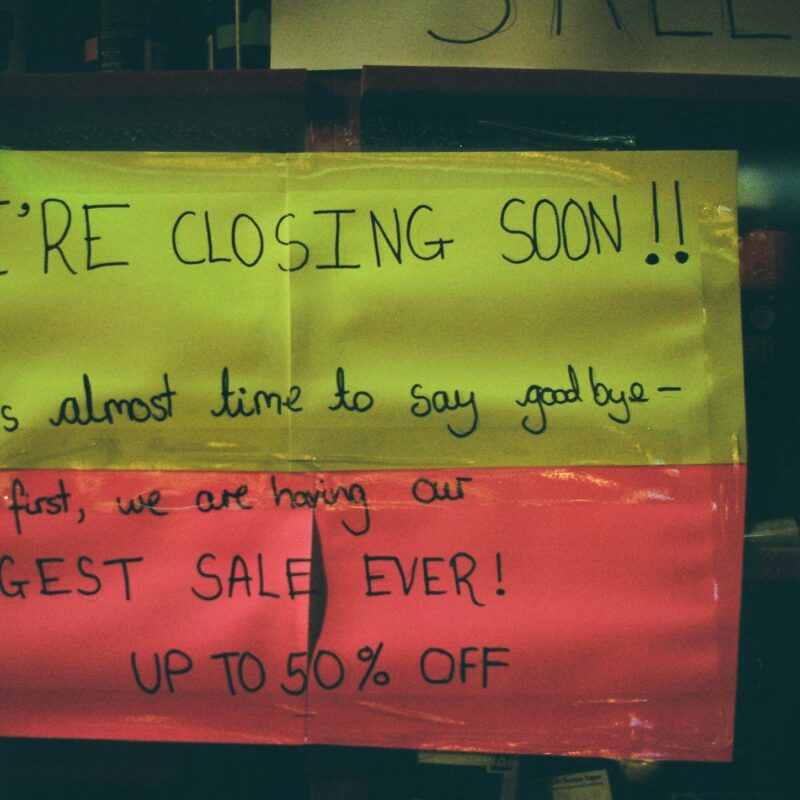 SALE
'RE CLOSING SOON!!
s almost time to say goodbye-
first, we are having our
GEST SALE EVER!
UP TO 50% OFF